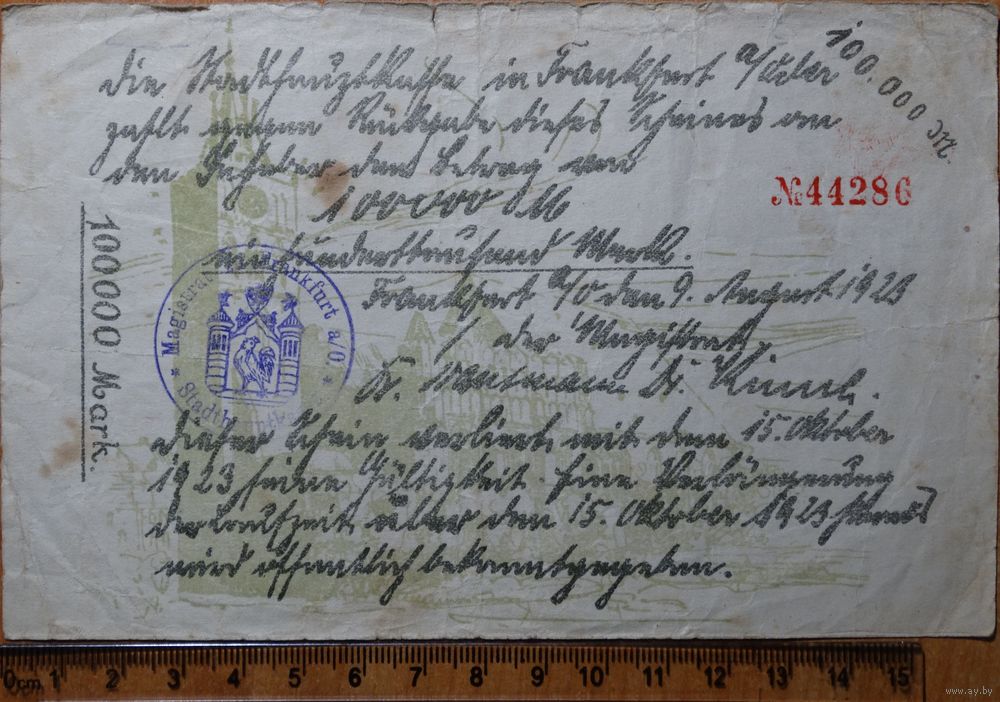 Die Stadthauptkasse in Frankfurt a/Oder
zahlt gegen Rückgabe dieses Scheines an
den Inhaber den Betrag von
100000 M
hunderttausend Mark.
Frankfurt a/O den 9. August 1923
der Magistrat
Dr. Trautmann Dr. Kinne.
Dieser Schein verliert mit dem 15. Oktober
1923 seine Gültigkeit. Eine Verlängerung
der Laufzeit über den 15. Oktober 1923 hinaus
wird öffentlich bekanntgegeben.
100.000 M.
№44286
100000 Mark.
* Magistrat Frankfurt a/O. *
0cm 1 2 3 4 5 6 7 8 9 10 11 12 13 14 15
www.ay.by